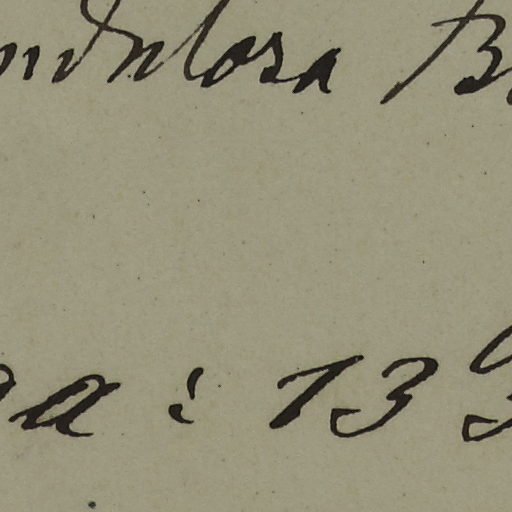 ndulosa B
a : 133